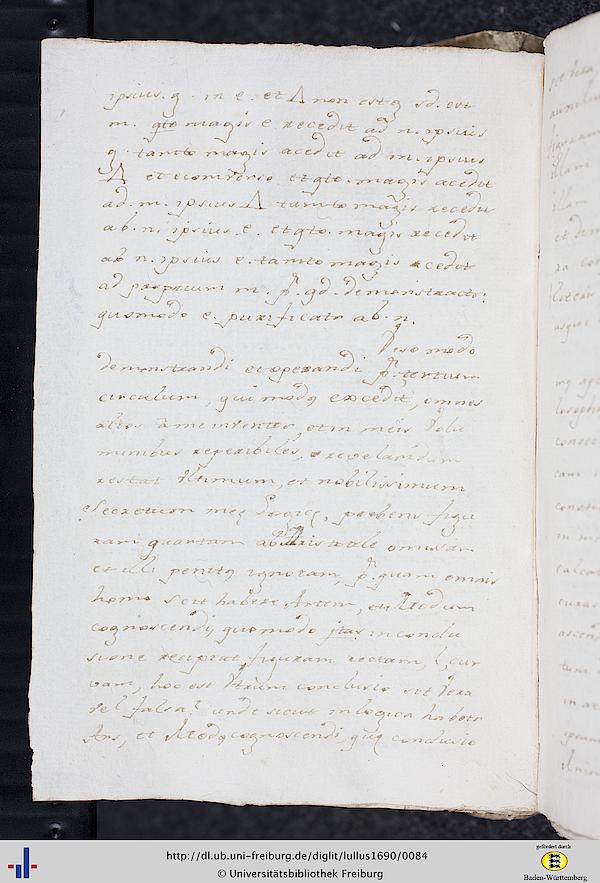 ipsius. g. in e. et Δ non est g sd. est
m. qto magis e recedit ad n. ipsius
g. tanto magis acedit ad m. ipsius
Δ et econverso et qto. magis acedit
ad. m. ipsius Δ tanto magis recedit
ab. n. ipsius. e. et qto. magis recedit
ab n. ipsius e. tanto magis acedit
ad proprium m. p. qd. demonstracto:
quomodo e. purificatr ab. n.
Viso modo
demonstrandi et operandi p. tertium
circulum, qui modq excedit, omnes
alios à me inventos, et in meis Volu
minibus reperibiles, revelandum
restat Ultimum, et nobilissimum
Secretum meę Logicę, præbens figu
ram quartam ab Aristotele omissam
et illi penitq ignotam, p. quam omnis
homo scit habere Artem, et Modum
cognoscendi, quomodo in conclu
sione recipiat figuram rectam, l, cur
vam, hoc est Utrum conclusio sit Vera
vel falsa unde sicut in logica habetr
Ars, et Modq cognoscendi, conclusio
http://dl.ub.uni-freiburg.de/diglit/lullus1690/0084
© Universitätsbibliothek Freiburg
gefördert durch
Baden-Württemberg